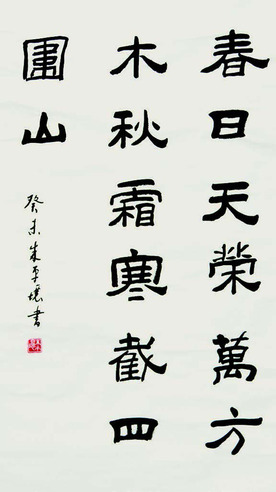 春日天榮萬方
木秋霜寒截四
圍山
癸未朱書